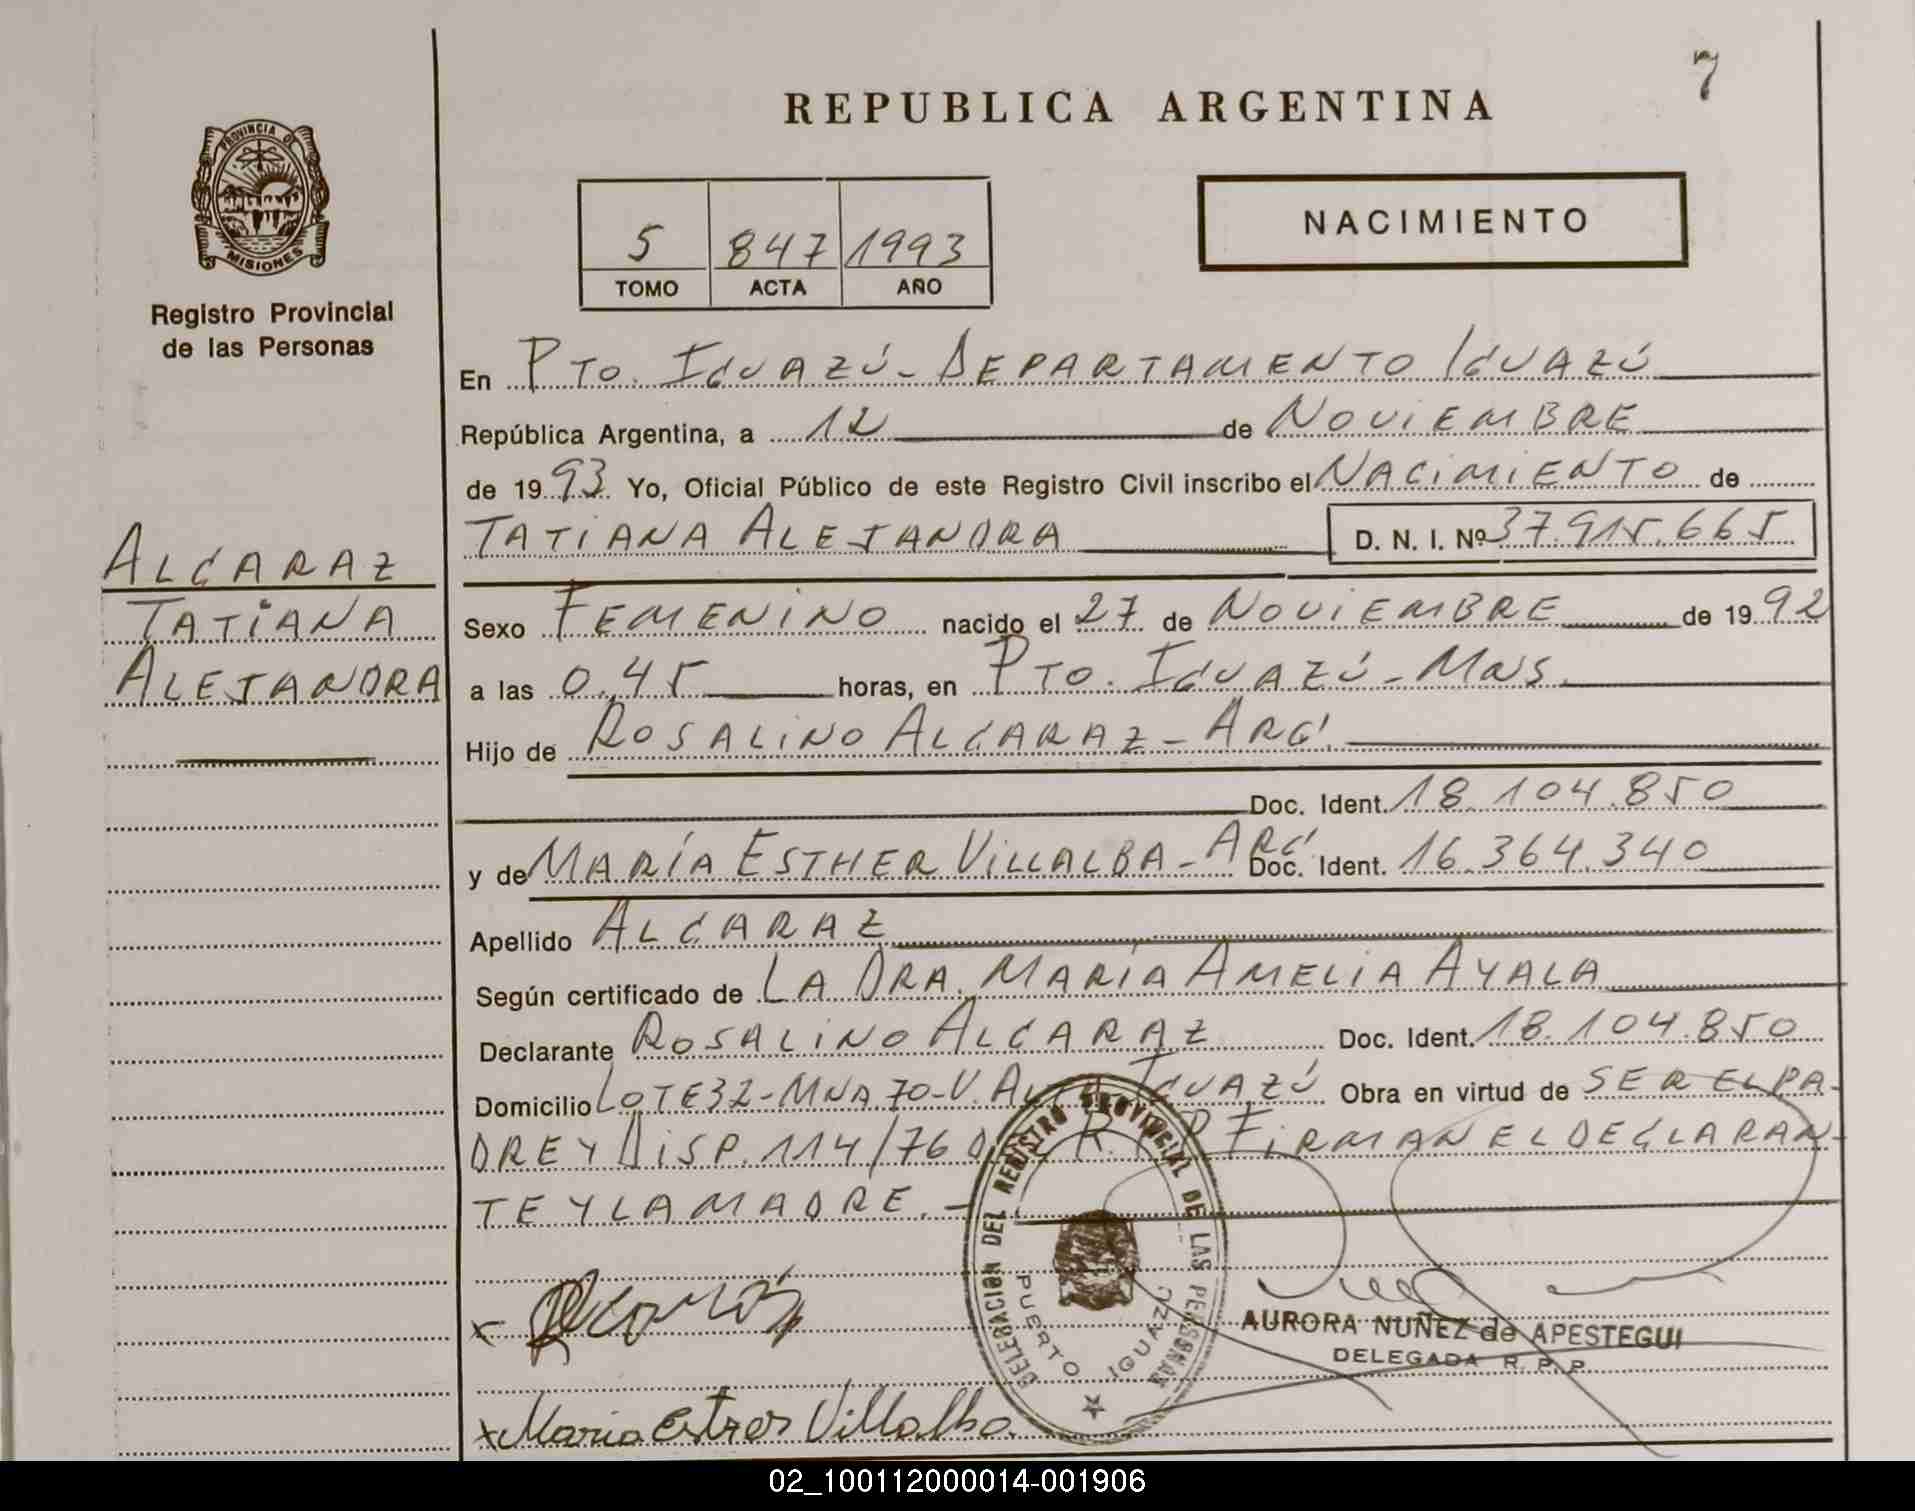 7
REPUBLICA ARGENTINA
PROVINCIA DE
MISIONES
Registro Provincial
de las Personas
NACIMIENTO
5 847 1993
TOMO ACTA AÑO
En PTO. IGUAZÚ - DEPARTAMENTO IGUAZÚ
República Argentina, a 12 de NOVIEMBRE
de 1993 Yo, Oficial Público de este Registro Civil inscribo el NACIMIENTO de
TATIANA ALEJANDRA D. N. I. Nº 37.915.665
ALCARAZ
TATIANA
ALEJANDRA
Sexo FEMENINO nacido el 27 de NOVIEMBRE de 1992
a las 0.45 horas, en PTO. IGUAZÚ - MNS.
Hijo de ROSALINO ALCARAZ - ARG.
Doc. Ident. 18.104.850
y de MARÍA ESTHER VILLALBA - ARG. Doc. Ident. 16.364.340
Apellido ALCARAZ
Según certificado de LA DRA. MARÍA AMELIA AYALA
Declarante ROSALINO ALCARAZ Doc. Ident. 18.104.850
Domicilio LOTE 32 - MNA 70 - V. ALTA IGUAZÚ Obra en virtud de SER EL PA-
DRE Y DISP. 114/76 DEL R.P.P FIRMAN EL DECLARAN-
TE Y LA MADRE. -
DELEGACION DEL REGISTRO PROVINCIAL DE LAS PERSONAS
PUERTO IGUAZU
AURORA NUÑEZ de APESTEGUI
DELEGADA R. P. P.
x
x Maria Ester Villalba
02_100112000014-001906